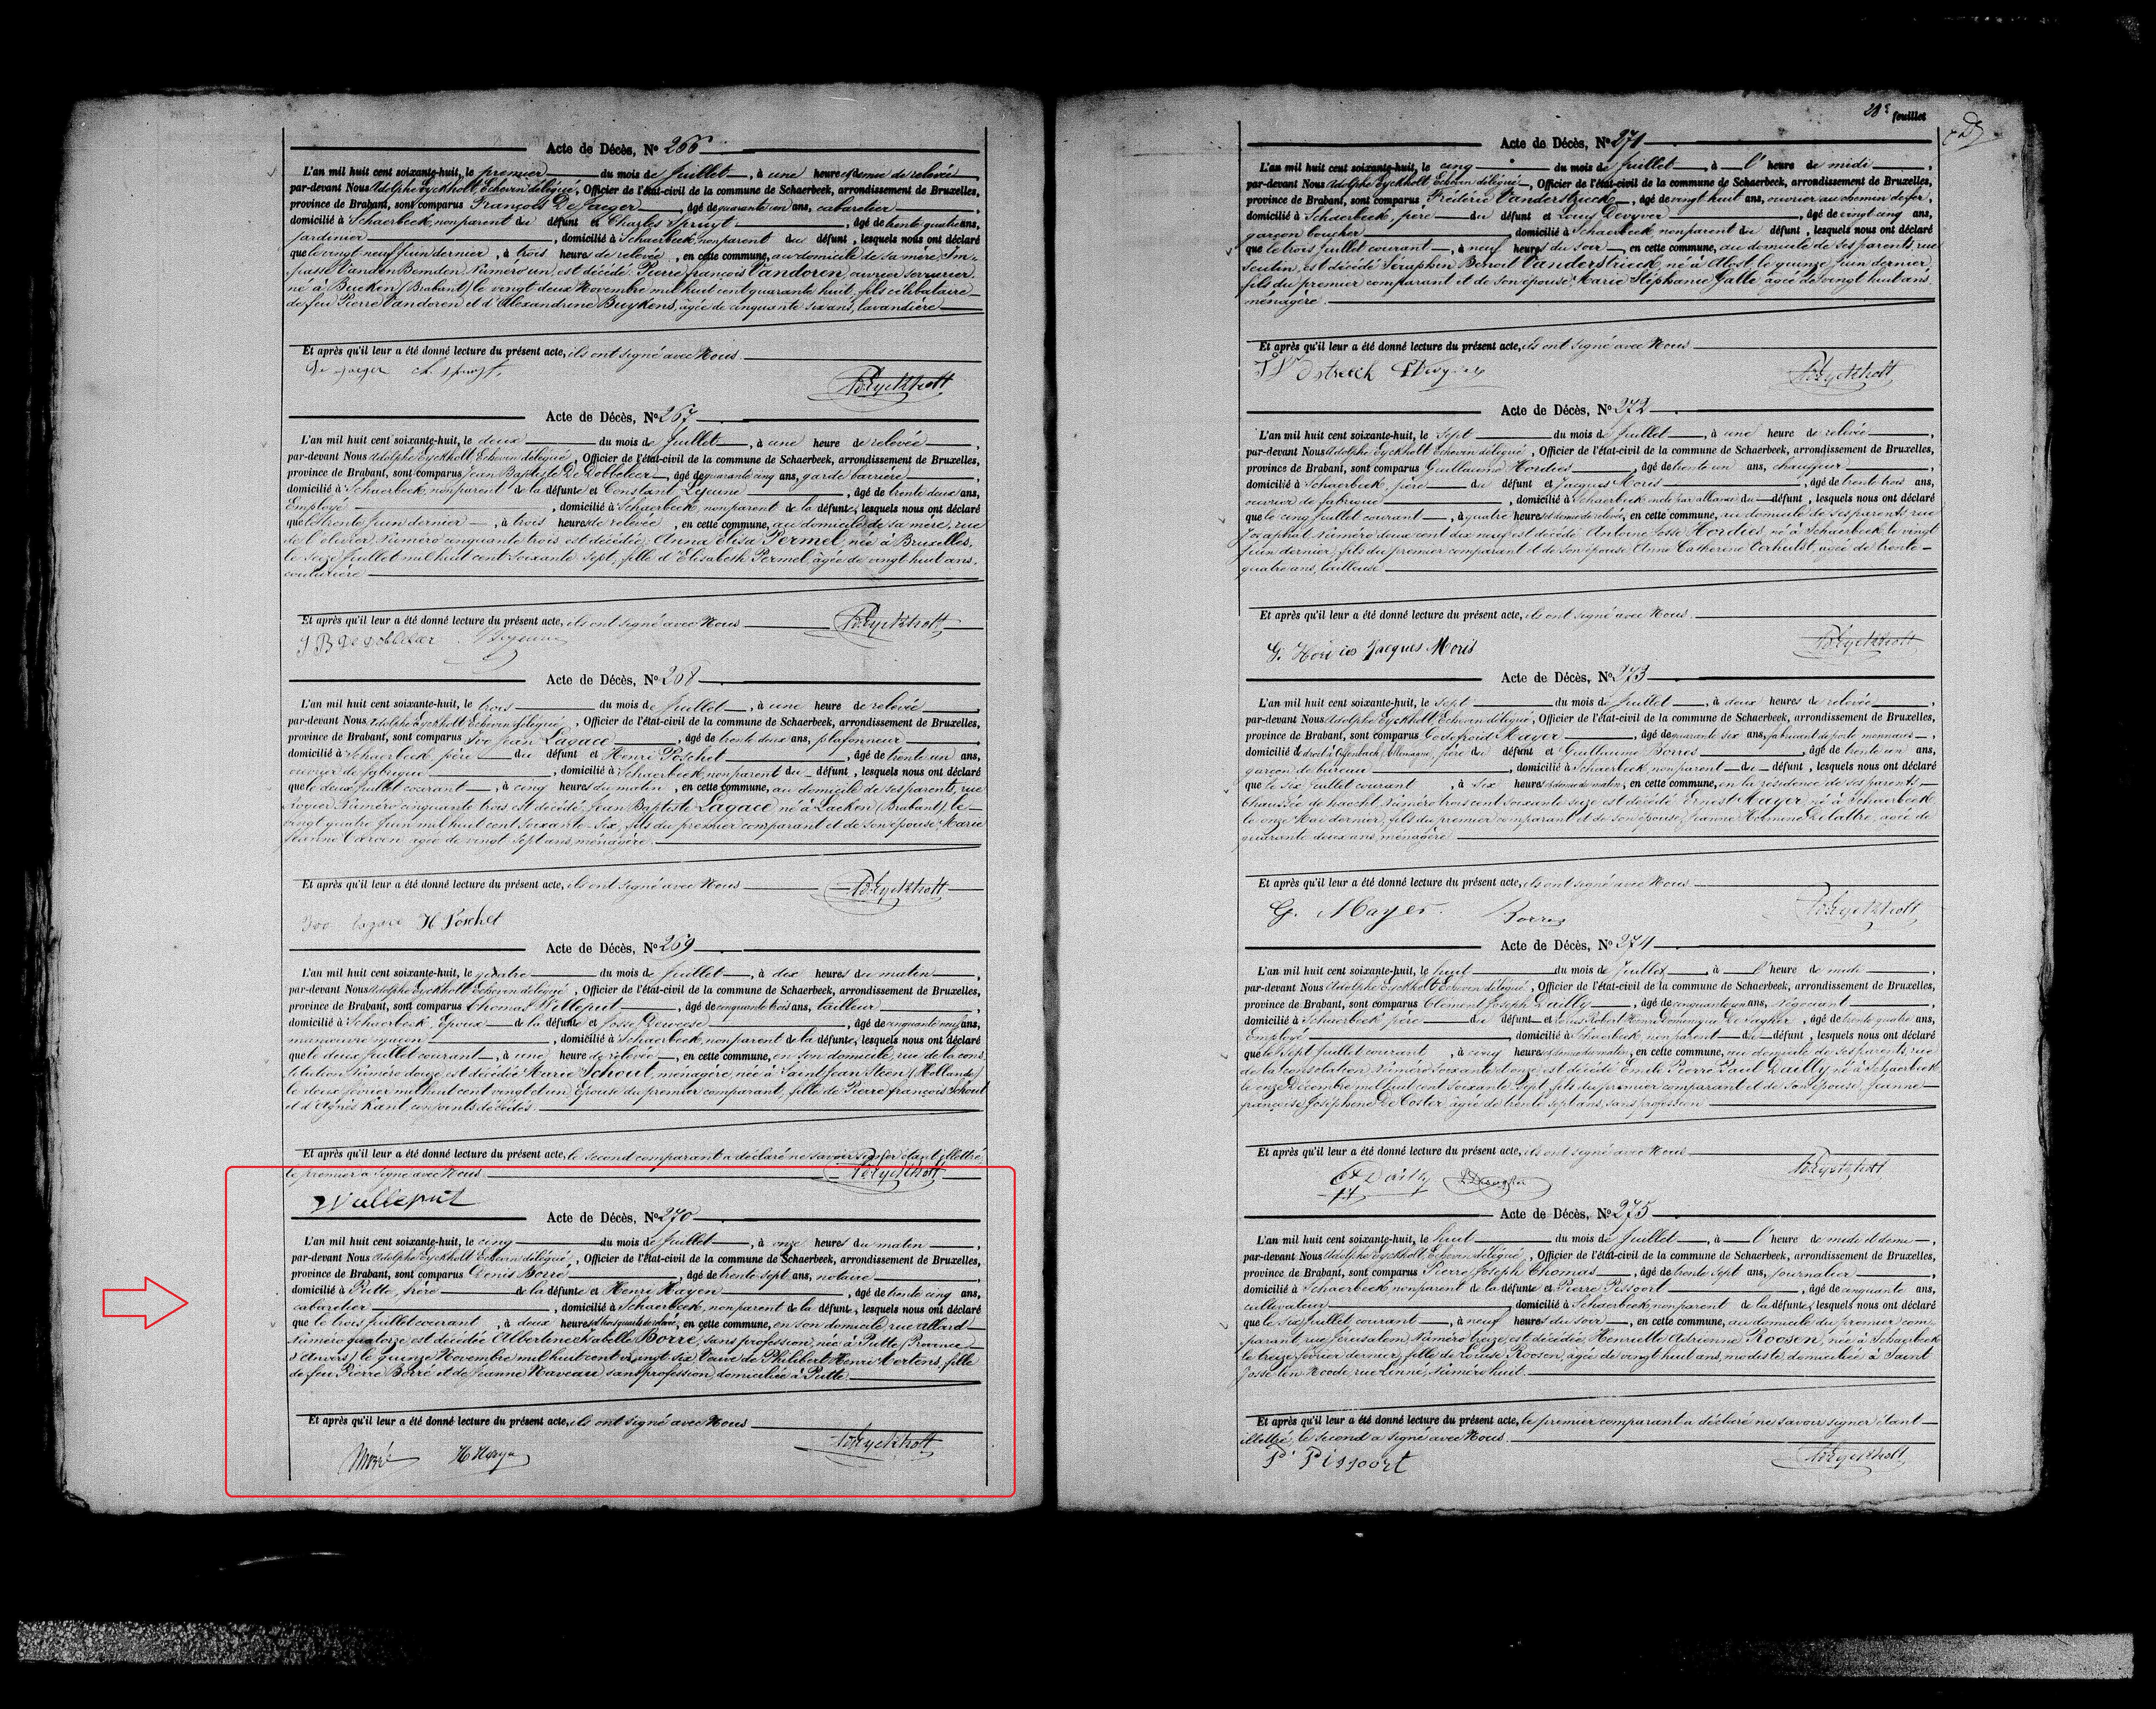 Acte de Décès, No 266
L'an mil huit cent soixante-huit, le premier du mois de Juillet, à une heure et demie de relevée,
par-devant Nous Adolphe Eyckholt Echevin délégué, Officier de l'état-civil de la commune de Schaerbeek, arrondissement de Bruxelles,
province de Brabant, sont comparus François De Jaeger, âgé de quarante un ans, cabaretier,
domicilié à Schaerbeek, non parent du défunt et Charles Spruyt, âgé de trente quatre ans,
jardinier, domicilié à Schaerbeek, non parent du défunt, lesquels nous ont déclaré
que le vingt neuf Juin dernier, à trois heures de relevée, en cette commune, au domicile de sa mère Im-
passe Vanden Bemden Numéro un, est décédé Pierre François Vandoren, ouvrier serrurier
né à Bueken (Brabant) le vingt deux Novembre mil huit cent quarante huit, fils célibataire
de feu Pierre Vandoren et d'Alexandrine Buykens, âgée de cinquante six ans, lavandière
Et après qu'il leur a été donné lecture du présent acte, ils ont signé avec Nous
De Jaeger Ch Spruyt. AdEyckholt
Acte de Décès, No 267
L'an mil huit cent soixante-huit, le deux du mois de Juillet, à une heure de relevée,
par-devant Nous Adolphe Eyckholt Echevin délégué, Officier de l'état-civil de la commune de Schaerbeek, arrondissement de Bruxelles,
province de Brabant, sont comparus Jean Baptiste De Dobbeleer, âgé de quarante cinq ans, garde barrière,
domicilié à Schaerbeek, non parent de la défunte et Constant Lejeune, âgé de trente deux ans,
Employé, domicilié à Schaerbeek, non parent de la défunte, lesquels nous ont déclaré
que le trente Juin dernier, à trois heures de relevée, en cette commune, au domicile de sa mère, rue
de l'olivier, Numéro cinquante trois est décédée; Anna Elisa Permel, née à Bruxelles,
le seize Juillet mil huit cent soixante sept, fille d'Elisabeth Permel, âgée de vingt huit ans,
couturière
Et après qu'il leur a été donné lecture du présent acte, ils ont signé avec Nous AdEyckholt
J B De Dobbeleer Lejeune
Acte de Décès, No 268
L'an mil huit cent soixante-huit, le trois du mois de Juillet, à une heure de relevée,
par-devant Nous Adolphe Eyckholt Echevin délégué, Officier de l'état-civil de la commune de Schaerbeek, arrondissement de Bruxelles,
province de Brabant, sont comparus Ive Jean Lagace, âgé de trente deux ans, plafonneur,
domicilié à Schaerbeek, père du défunt et Henri Poschet, âgé de trente un ans,
ouvrier de fabrique, domicilié à Schaerbeek, non parent du défunt, lesquels nous ont déclaré
que le deux Juillet courant, à cinq heures du matin, en cette commune, au domicile de ses parents, rue
Rogier, Numéro cinquante trois est décédé Jean Baptiste Lagace né à Laeken (Brabant) le
vingt quatre Juin mil huit cent soixante six, fils du premier comparant et de son épouse Marie
Jeanne âgée de vingt sept ans, ménagère.
Et après qu'il leur a été donné lecture du présent acte, ils ont signé avec Nous AdEyckholt
Ivo Lagace H Poschet
Acte de Décès, No 269
L'an mil huit cent soixante-huit, le quatre du mois de Juillet, à dix heures du matin,
par-devant Nous Adolphe Eyckholt Echevin délégué, Officier de l'état-civil de la commune de Schaerbeek, arrondissement de Bruxelles,
province de Brabant, sont comparus Thomas Willeput, âgé de cinquante trois ans, tailleur,
domicilié à Schaerbeek, Epoux de la défunte et Josse Deweese, âgé de cinquante neuf ans,
manœuvre maçon, domicilié à Schaerbeek, non parent de la défunte, lesquels nous ont déclaré
que le deux Juillet courant, à une heure de relevée, en cette commune, en son domicile, rue de la cons
titution Numéro douze, est décédée Marie Schout, ménagère, née à Saint Jean Steen (Hollande)
le deux Février mil huit cent vingt et un Epouse du premier comparant, fille de Pierre François Schout
et d'Agnès Kant, conjoints décédés.
Et après qu'il leur a été donné lecture du présent acte, le second comparant a déclaré ne savoir signer étant illettré
le premier a signé avec Nous AdEyckholt
Willeput
Acte de Décès, No 270
L'an mil huit cent soixante-huit, le cinq du mois de Juillet, à onze heures du matin,
par-devant Nous Adolphe Eyckholt Echevin délégué, Officier de l'état-civil de la commune de Schaerbeek, arrondissement de Bruxelles,
province de Brabant, sont comparus Denis Borré, âgé de trente sept ans, notaire,
domicilié à Putte, frère de la défunte et Henri Hayen, âgé de trente cinq ans,
cabaretier, domicilié à Schaerbeek, non parent de la défunte, lesquels nous ont déclaré
que le trois Juillet courant, à deux heures et trois quarts de relevée, en cette commune, en son domicile rue Allard
Numéro quatorze, est décédée Albertine Isabelle Borré, sans profession, née à Putte (Province
d'Anvers) le quinze Novembre mil huit cent vingt six, Veuve de Philibert Henri Mertens, fille
de feu Pierre Borré et de Jeanne Naveau sans profession, domiciliée à Putte
Et après qu'il leur a été donné lecture du présent acte, ils ont signé avec Nous
H Hayen AdEyckholt
28e feuillet
Acte de Décès, No 271
L'an mil huit cent soixante-huit, le cinq du mois de Juillet, à l' heure de midi,
par-devant Nous Adolphe Eyckholt, Echevin délégué, Officier de l'état-civil de la commune de Schaerbeek, arrondissement de Bruxelles,
province de Brabant, sont comparus Fréderic Vanderstrieck, âgé de vingt huit ans, ouvrier au chemin de fer,
domicilié à Schaerbeek, père du défunt et Louis Devyver, âgé de vingt cinq ans,
garçon boucher, domicilié à Schaerbeek non parent du défunt, lesquels nous ont déclaré
que le trois Juillet courant, à neuf heures du soir, en cette commune, au domicile de ses parents, rue
Seutin, est décédé Séraphin Benoit Vanderstrieck, né à Alost, le quinze Juin dernier,
fils du premier comparant et de son épouse Marie Stéphanie Galle âgée de vingt huit ans
ménagère.
Et après qu'il leur a été donné lecture du présent acte, ils ont signé avec Nous
AdEyckholt
Acte de Décès, No 272
L'an mil huit cent soixante-huit, le sept du mois de Juillet, à une heure de relevée,
par-devant Nous Adolphe Eyckholt Echevin délégué, Officier de l'état-civil de la commune de Schaerbeek, arrondissement de Bruxelles,
province de Brabant, sont comparus Guillaume Hordies, âgé de trente un ans, chaufeur,
domicilié à Schaerbeek, père du défunt et Jacques Moris, âgé de trente trois ans,
ouvrier de fabrique, domicilié à Schaerbeek oncle par alliance du défunt, lesquels nous ont déclaré
que le cinq Juillet courant, à quatre heures et demie de relevée, en cette commune, au domicile de ses parents, rue
Josaphat Numéro deux cent dix neuf est décédé Antoine Josse Hordies, né à Schaerbeek, le vingt
Juin dernier, fils du premier comparant et de son épouse Anne Catherine Verhulst, âgée de trente
quatre ans, tailleuse
Et après qu'il leur a été donné lecture du présent acte, ils ont signé avec Nous
G. Hordies Jacques Moris AdEyckholt
Acte de Décès, No 273
L'an mil huit cent soixante-huit, le sept du mois de Juillet, à deux heures de relevée,
par-devant Nous Adolphe Eyckholt, Echevin délégué, Officier de l'état-civil de la commune de Schaerbeek, arrondissement de Bruxelles,
province de Brabant, sont comparus Godefroid Mayer, âgé de quarante six ans, fabricant de porte monnaies,
domicilié de droit à Offenbach, Allemagne, père du défunt et Guillaume Borres, âgé de trente un ans,
garçon de bureau, domicilié à Schaerbeek, non parent du défunt, lesquels nous ont déclaré
que le six Juillet courant, à six heures et demie du matin, en cette commune, en la résidence de ses parents
Chaussée de haecht, Numéro trois cent soixante seize est décédé Ernest Mayer, né à Schaerbeek
le onze Mai dernier, fils du premier comparant et de son épouse, Jeanne Hermine Delattre, âgée de
quarante deux ans, ménagère
Et après qu'il leur a été donné lecture du présent acte, ils ont signé avec Nous
G. Mayer. Borres AdEyckholt
Acte de Décès, No 274
L'an mil huit cent soixante-huit, le huit du mois de Juillet, à l' heure de midi,
par-devant Nous Adolphe Eyckholt Echevin délégué, Officier de l'état-civil de la commune de Schaerbeek, arrondissement de Bruxelles,
province de Brabant, sont comparus Clément Joseph Dailly, âgé de cinquante un ans, négociant,
domicilié à Schaerbeek père du défunt et Louis Robert Henri Dominique De Sagher, âgé de trente quatre ans,
Employé, domicilié à Schaerbeek, non parent du défunt, lesquels nous ont déclaré
que le sept Juillet courant, à cinq heures et demie du matin, en cette commune, au domicile de ses parents, rue
de la consolation, Numéro soixante et onze est décédé Emile Pierre Paul Dailly né à Schaerbeek
le onze Décembre mil huit cent soixante sept, fils du premier comparant et de son épouse, Jeanne
françoise Joséphine De Coster, âgée de trente sept ans, sans profession
Et après qu'il leur a été donné lecture du présent acte, ils ont signé avec Nous.
Dailly AdEyckholt
Acte de Décès, No 275
L'an mil huit cent soixante-huit, le huit du mois de Juillet, à l' heure de midi et demie,
par-devant Nous Adolphe Eyckholt, Echevin délégué, Officier de l'état-civil de la commune de Schaerbeek, arrondissement de Bruxelles,
province de Brabant, sont comparus Pierre Joseph Thomas, âgé de trente sept ans, journalier,
domicilié à Schaerbeek non parent de la défunte et Pierre Pissoort, âgé de cinquante ans,
cultivateur, domicilié à Schaerbeek, non parent de la défunte, lesquels nous ont déclaré
que le six Juillet courant, à neuf heures du soir, en cette commune, au domicile du premier com-
parant, rue Jérusalem Numéro treize, est décédée, Henriette Adrienne Roosen, née à Schaerbeek
le treize février dernier, fille de Louise Roosen, âgée de vingt huit ans, modiste, domiciliée à Saint
Josse ten Noode, rue Linné, Numéro huit.
Et après qu'il leur a été donné lecture du présent acte, le premier comparant a déclaré ne savoir signer étant
illettré, le second a signé avec Nous.
P. Pissoort AdEyckholt